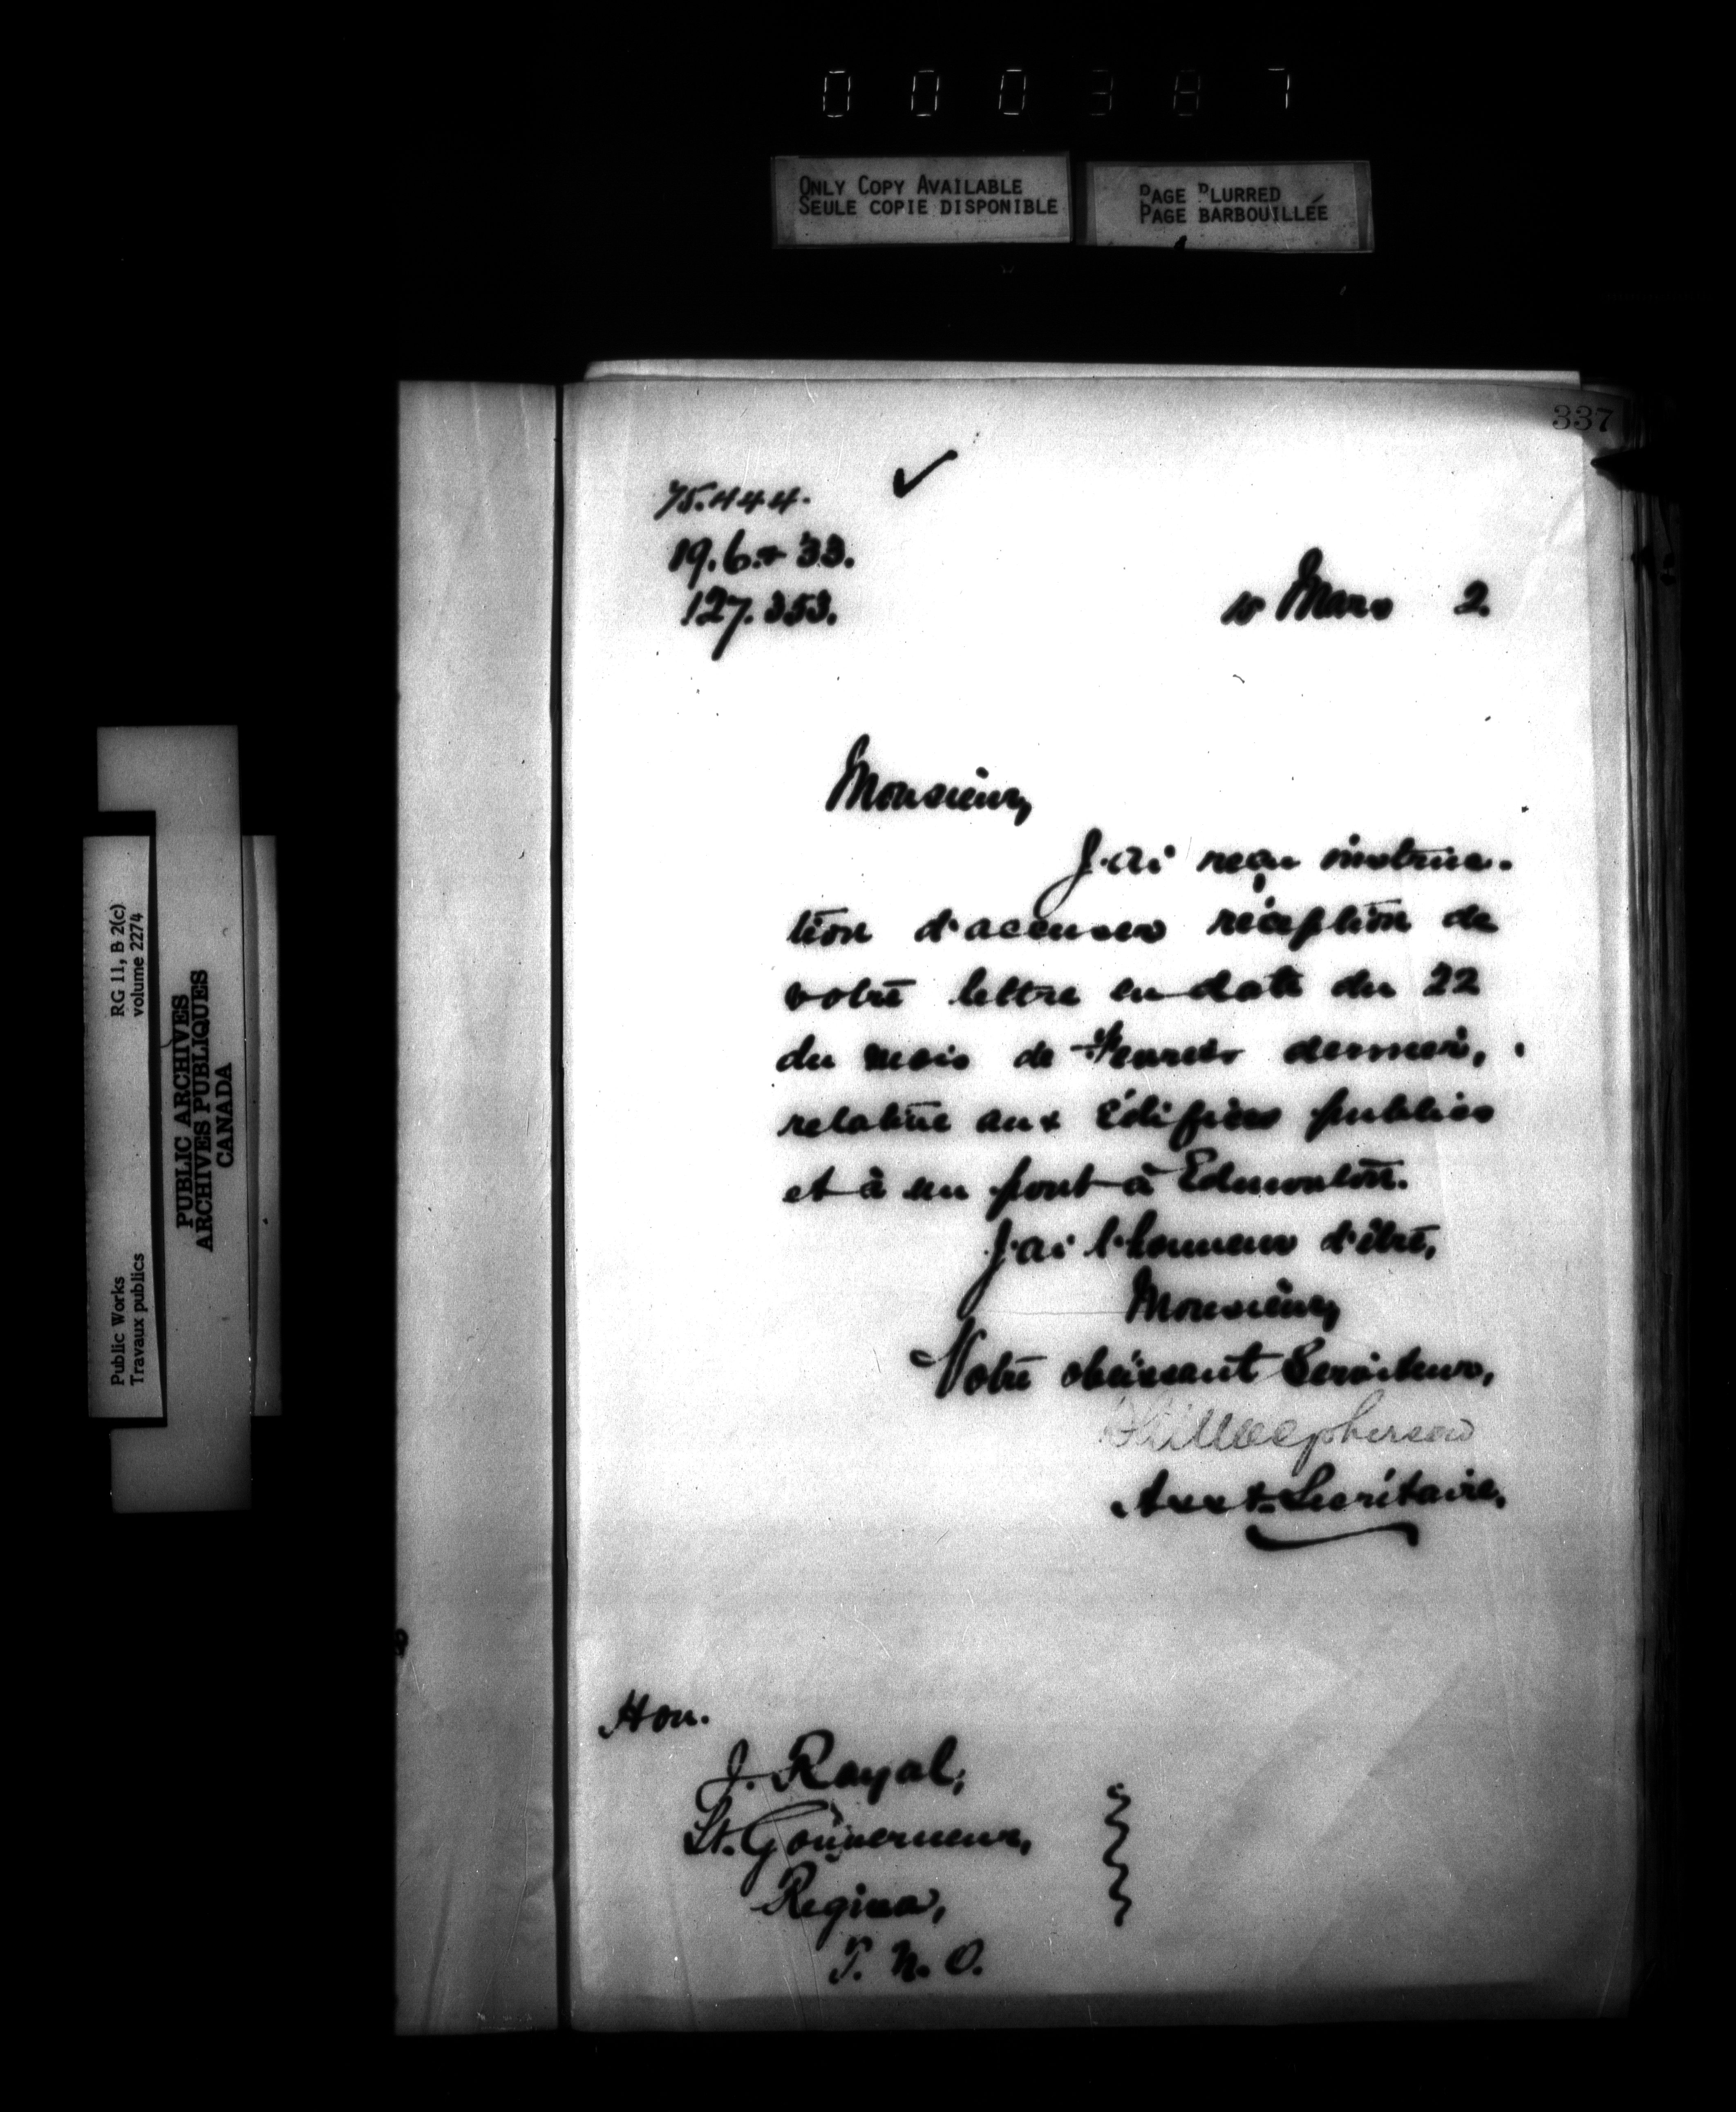 000387
ONLY COPY AVAILABLE
SEULE COPIE DISPONIBLE
PAGE BLURRED
PAGE BARBOUILLÉE
337
75.444.
19.6.+ 33.
127.353.
Mars 2
Monsieur,
J'ai reçu instruc-
tion d'accuser réception de
votre lettre en date du 22
du mois de dernier,
relative aux Édifices publics
et à un pont à Edmonton.
J'ai l'honneur d'être,
Monsieur,
Votre obéissant Serviteur,
Macpherson
Asst. Secrétaire.
Hon.
J. Royal,
Lt. Gouverneur,
Regina,
T. N. O.
Public Works
Travaux publics
RG 11, B 2(c)
volume 2274
PUBLIC ARCHIVES
ARCHIVES PUBLIQUES
CANADA